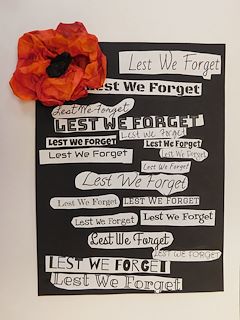 Lest We Forget
Lest We Forget
Lest We Forget
LEST WE FORGET
Lest We Forget
LEST WE FORGET
Lest We Forget
Lest We Forget
Lest We Forget
Lest We Forget
Lest We Forget
Lest We Forget
LEST WE FORGET
Lest We Forget
Lest We Forget
Lest We Forget
LEST WE FORGET
LEST WE FORGET
Lest We Forget